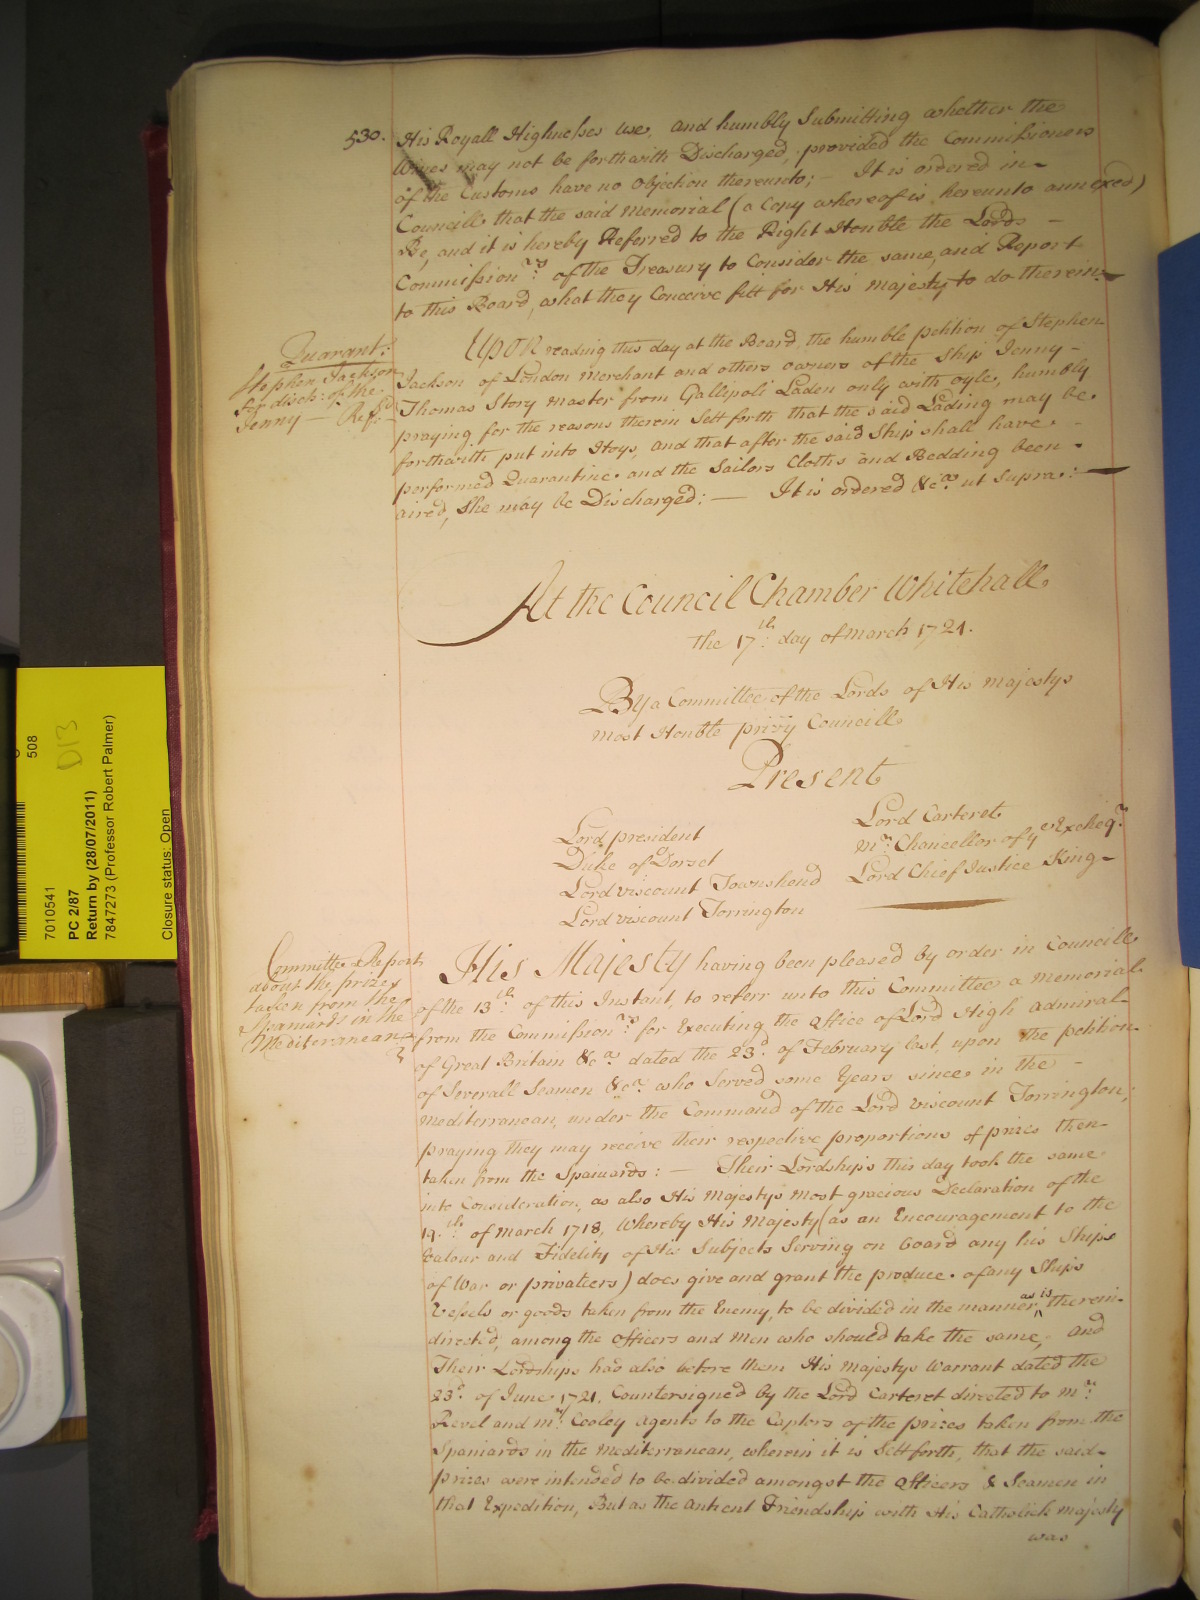 530.
His Royall Highnesses use, and humbly Submitting whether the
Wines may not be forthwith Discharged, provided the Commissioners
of the Customs have no Objection thereunto;— It is ordered in
Councill, that the said Memorial (a Copy whereof is hereunto annexed)
Be, and it is hereby Referred to the Right Honble the Lords
Commission.rs of the Treasury to Consider the same, and Report
to this Board, what they Conceive fitt for His Majesty to do therein.—
Quarant:
Stephen Jackson
for disch: of the
Jenny — Ref.d
UPON reading this day at the Board, the humble petition of Stephen
Jackson of London Merchant and others owners of the Ship Jenny—
Thomas Story Master from Gallipoli Laden only with oyle, humbly
praying for the reasons therein Sett forth that the said Lading may be
forthwith put into Hoys, and that after the said Ship shall have
performed Quarantine and the Sailors Cloths and Bedding been
aired, She may be Discharged:— It is ordered &c.a ut supra:—
At the Council Chamber Whitehall
the 17.th day of March 1721.
By a Committee of the Lords of His Majestys
most Honble privy Councill
Present
Lord president
Duke of Dorset
Lord viscount Townshend
Lord viscount Torrington
Lord Carteret
Mr. Chancellor of ye Excheq.r
Lord Chief Justice King
Committee Report
about the prizes
taken from the
Spaniards in the
Mediteranean
HIS MAJESTY having been pleased by order in Councill
of the 13.th of this Instant, to referr unto this Committee a Memorial
from the Commission.rs for Executing the Office of Lord High Admiral
of Great Britain &c.a dated the 23.d of February last, upon the petition
of Severall Seamen &c.a who Served some Years since in the —
Mediterranean, under the Command of the Lord viscount Torrington,
praying they may receive their respective proportions of prizes then
taken from the Spaniards:— Their Lordships this day took the same
into Consideration, as also His Majestys most gracious Declaration of the
14.th of March 1718, Whereby His Majesty (as an Encouragement to the
Valour and Fidelity of His Subjects Serving on board any his Ships
of War or privatiers) does give and grant the produce of any Ships
Vessels or goods taken from the Enemy, to be divided in the manner as is therein
directed, among the Officers and Men who should take the same, And
Their Lordships had also before them His Majestys Warrant dated the
23.d of June 1721. Countersigned by the Lord Carteret directed to Mr.
Revel and Mr. Cooley Agents to the Captors of the prizes taken from the
Spaniards in the Mediterranean, wherein it is Sett forth, that the said
prizes were intended to be divided amongst the Officers & Seamen in
that Expedition, But as the Antient Friendship with His Catholick Majesty
was
508
D13
7010541
PC 2/87
Return by (28/07/2011)
7847273 (Professor Robert Palmer)
Closure status: Open